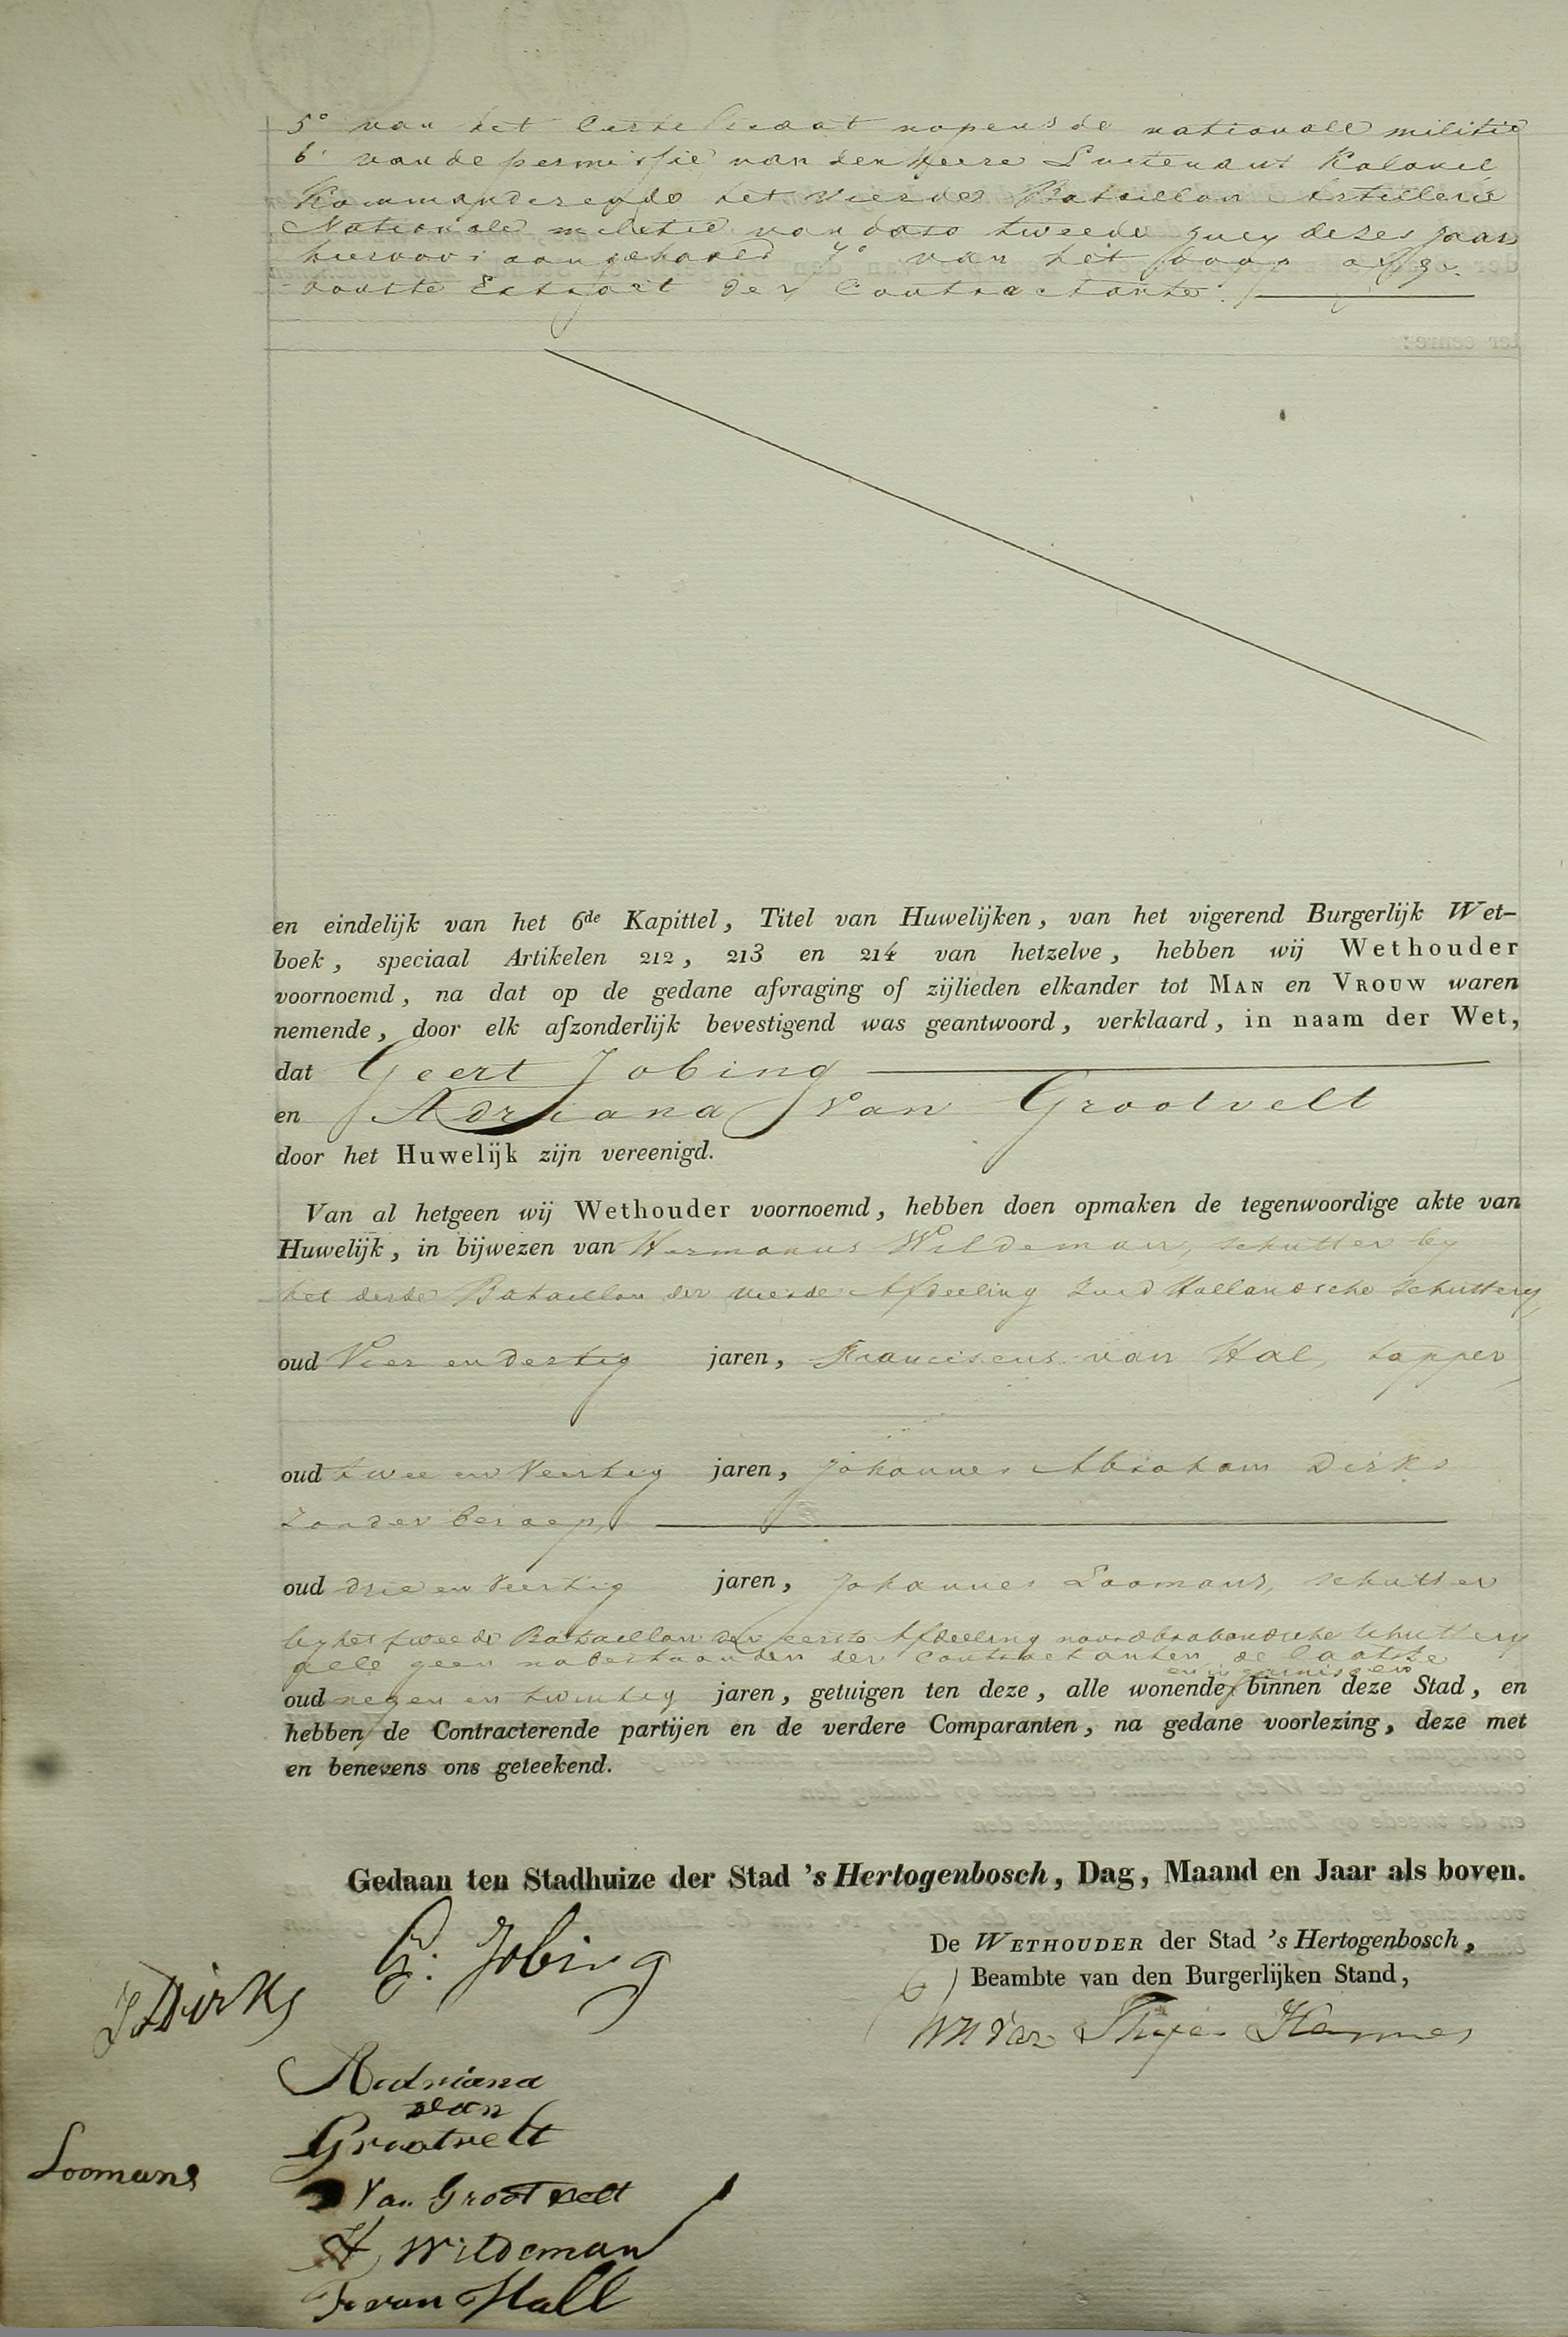 5° van het Certificaat nopens de nationale militie
6° van de permissie van den Heere Luitenant Kolonel
Kommanderende het vierde Bataillon Artillerie
Nationale militie van dato tweede July dezes jaars
hiervoor aangehaald 7° van het voor
Extract der Contractante
en eindelijk van het 6de Kapittel, Titel van Huwelijken, van het vigerend Burgerlijk Wet-
boek, speciaal Artikelen 212, 213 en 214 van hetzelve, hebben wij Wethouder
voornoemd, na dat op de gedane afvraging of zijlieden elkander tot MAN en VROUW waren
nemende, door elk afzonderlijk bevestigend was geantwoord, verklaard, in naam der Wet,
dat Geert Jobing
en Adriana Van Grootvelt
door het Huwelijk zijn vereenigd.
Van al hetgeen wij Wethouder voornoemd, hebben doen opmaken de tegenwoordige akte van
Huwelijk, in bijwezen van Hermanus Wildeman, schutter by
het derde Bataillon der vierde Afdeeling Zuid Hollandsche Schuttery,
oud Vier en dertig jaren, Franciscus van Hal, tapper,
oud twee en Veertig jaren, Johannes Abraham Dirks
zonder beroep,
oud drie en Veertig jaren, Johannes Loomans, schutter
by het tweede Bataillon der eerste Afdeeling noordbrabandsche Schuttery
alle geen nabestaanden der Contractanten, de laatste
en in garnisoen
oud negen en twintig jaren, getuigen ten deze, alle wonende binnen deze Stad, en
hebben de Contracterende partijen en de verdere Comparanten, na gedane voorlezing, deze met
en benevens ons geteekend.
Gedaan ten Stadhuize der Stad 's Hertogenbosch, Dag, Maand en Jaar als boven.
De WETHOUDER der Stad 's Hertogenbosch,
Beambte van den Burgerlijken Stand,
G: Jobing
JADirks
Aadriana
van
Grootvelt
Loomans
Van Grootvelt
H, Wildeman
F van Hall